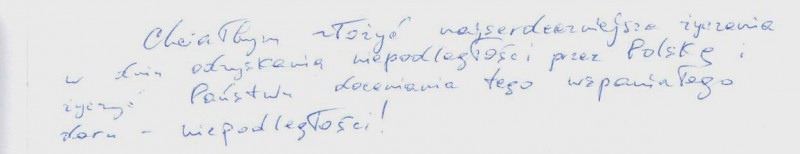 Chciałbym złożyć najserdeczniejsze życzenia
w dniu odzyskania niepodległości przez Polskę i
życzyć Państwu doceniania tego wspaniałego
daru - niepodległości!